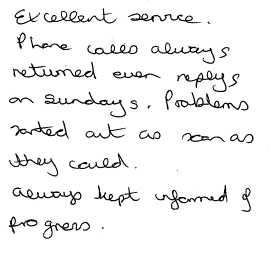 Excellent service.
Phone calls always
returned even replys
on sundays. Problems
sorted out as soon as
they could.
always kept informed of
progress.